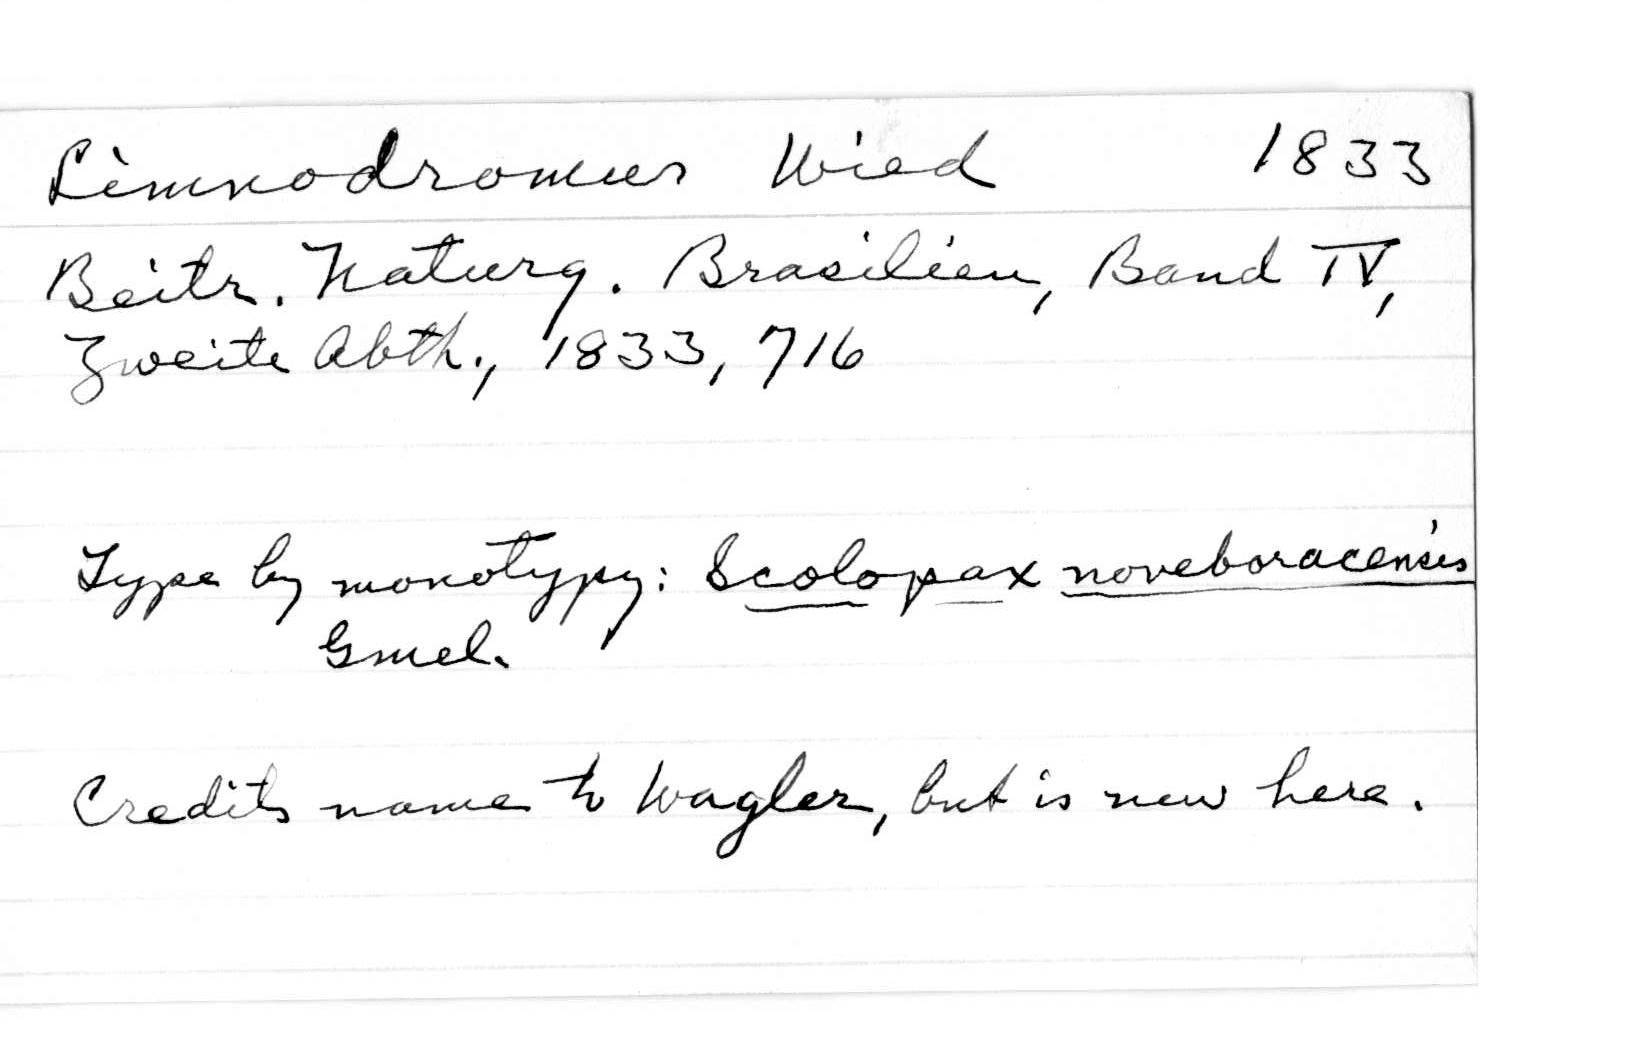 Limnodromus Wied 1833
Beitr. Naturg. Brasilien, Band IV,
Zweite Abth., 1833, 716
Type by monotypy: Scolopax noveboracensis
Gmel.
Credits name to Wagler, but is new here.